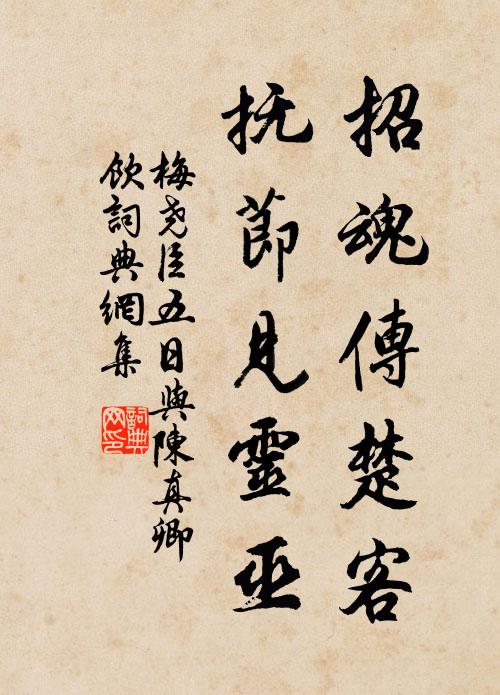 招魂傳楚客
抚節見靈巫
梅尧臣五日與陳真卿
飲詞典網集
詞典
网印